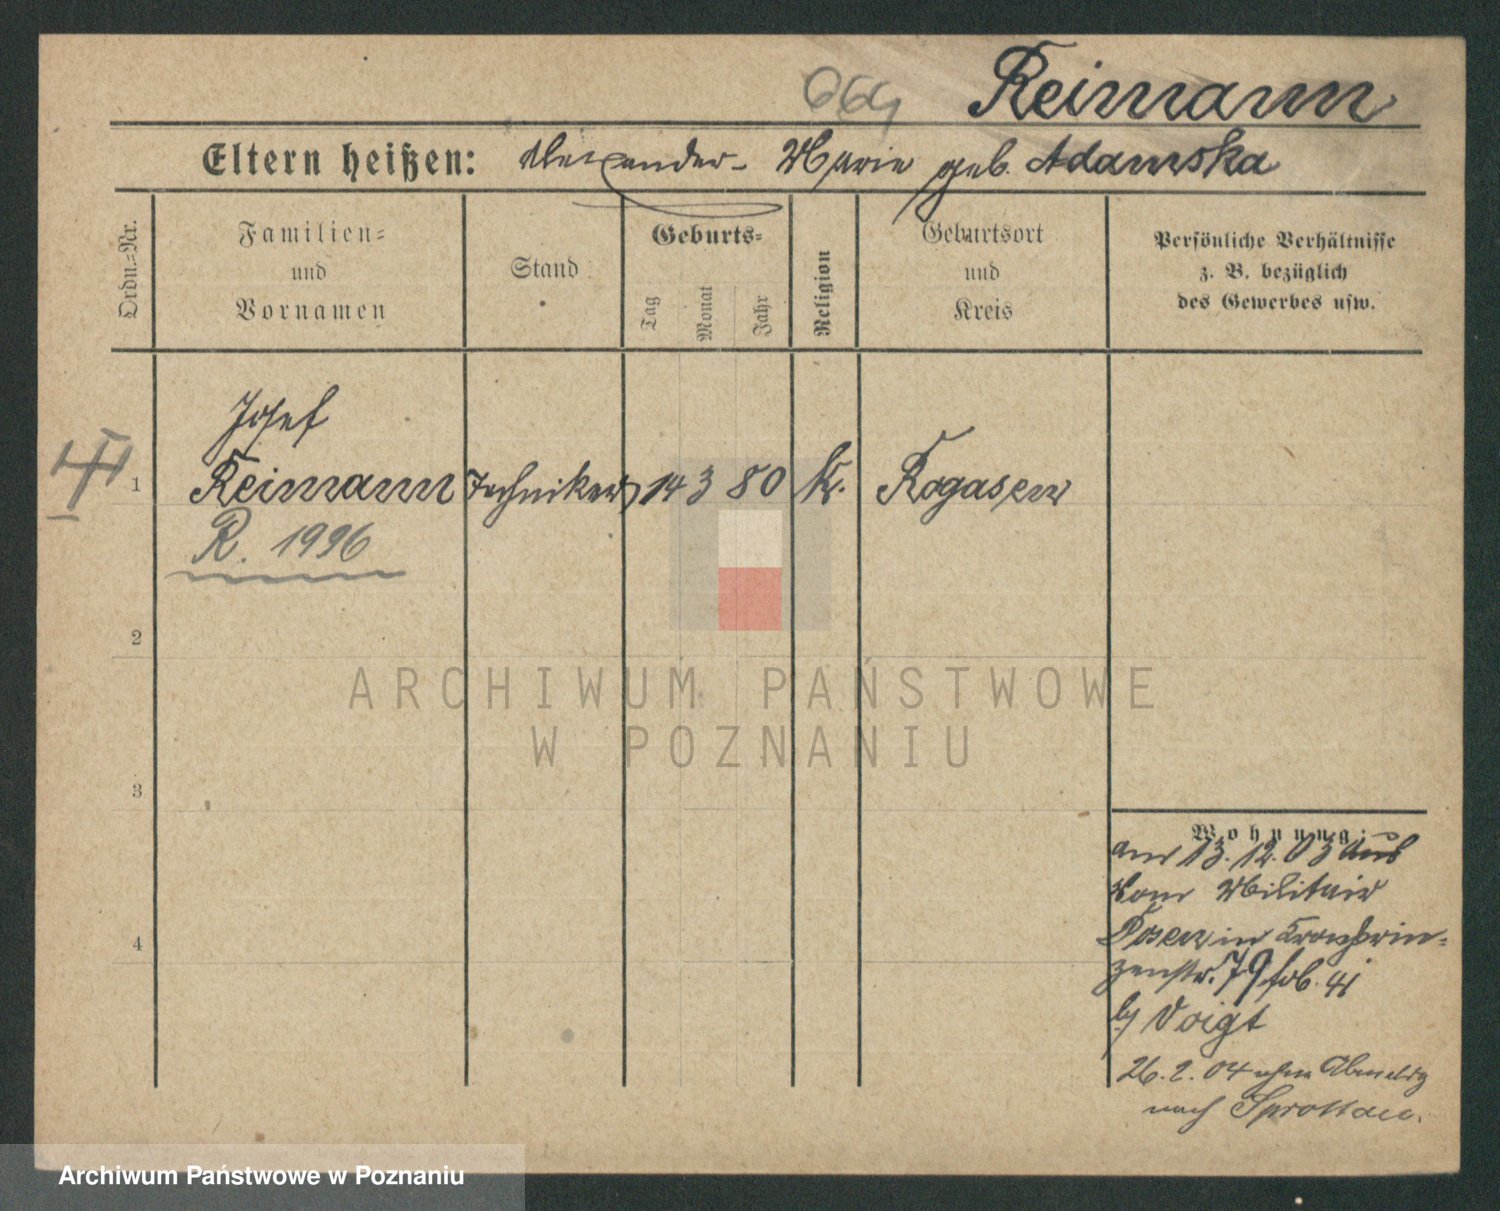 Reimann
Eltern heißen: Alexander - Marie geb. Adamska
Ordn.-Nr.
Familien-
und
Vornamen
Stand
Geburts-
Tag
Monat
Jahr
Religion
Geburtsort
und
Kreis
Persönliche Verhältnisse
z. B. bezüglich
des Gewerbes usw.
Josef
1 Reimann Techniker 14 3 80 K. Rogasen
R. 1996
2
3
4
Wohnung:
am 13. 12. 03 aus
vom Militair
Posen in Kronprin-
zenstr. 79
b/ Voigt
26. 2. 04 ohne Abmeldg
nach Sprottau.
ARCHIWUM PAŃSTWOWE
W POZNANIU
Archiwum Państwowe w Poznaniu